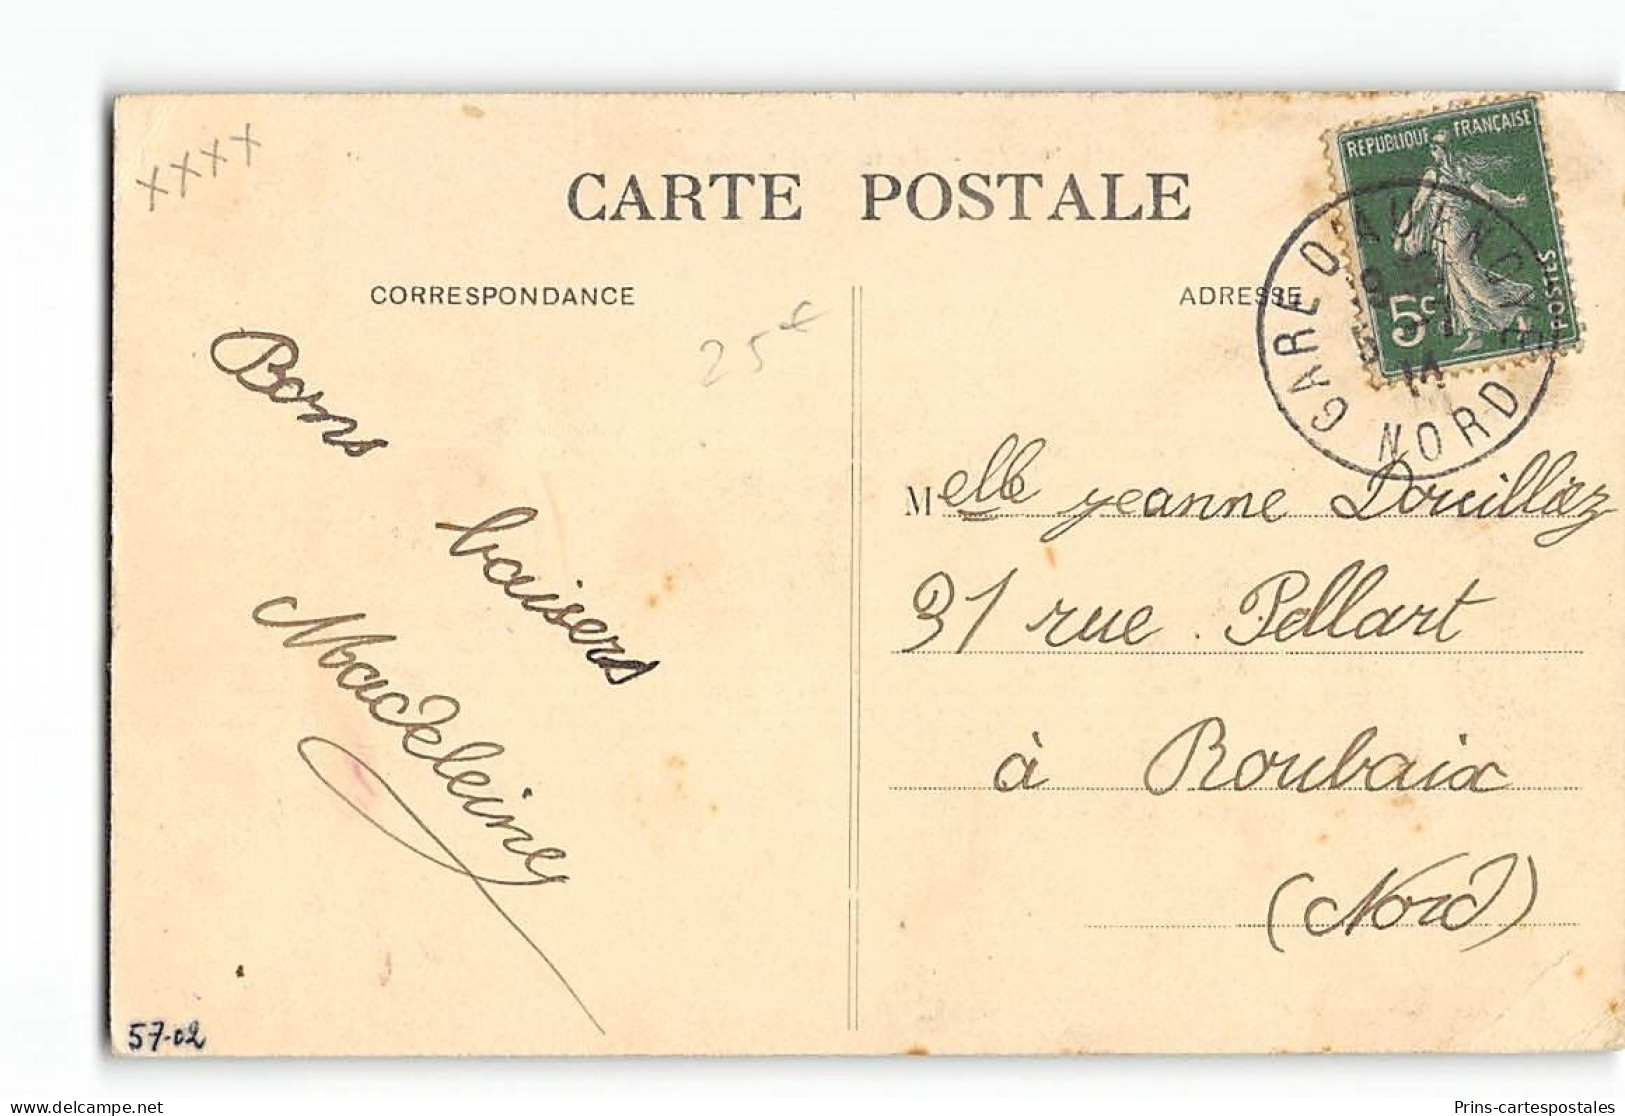 xxxx
CARTE POSTALE
RÉPUBLIQUE FRANÇAISE
POSTES
5c
GARE D'AVESNES
NORD
14
CORRESPONDANCE
ADRESSE
25€
Bons
baisers
Madeleine
Melle Jeanne Douilliez
31 rue Pellart
à Roubaix
(Nord)
57-02
Prins-cartespostales